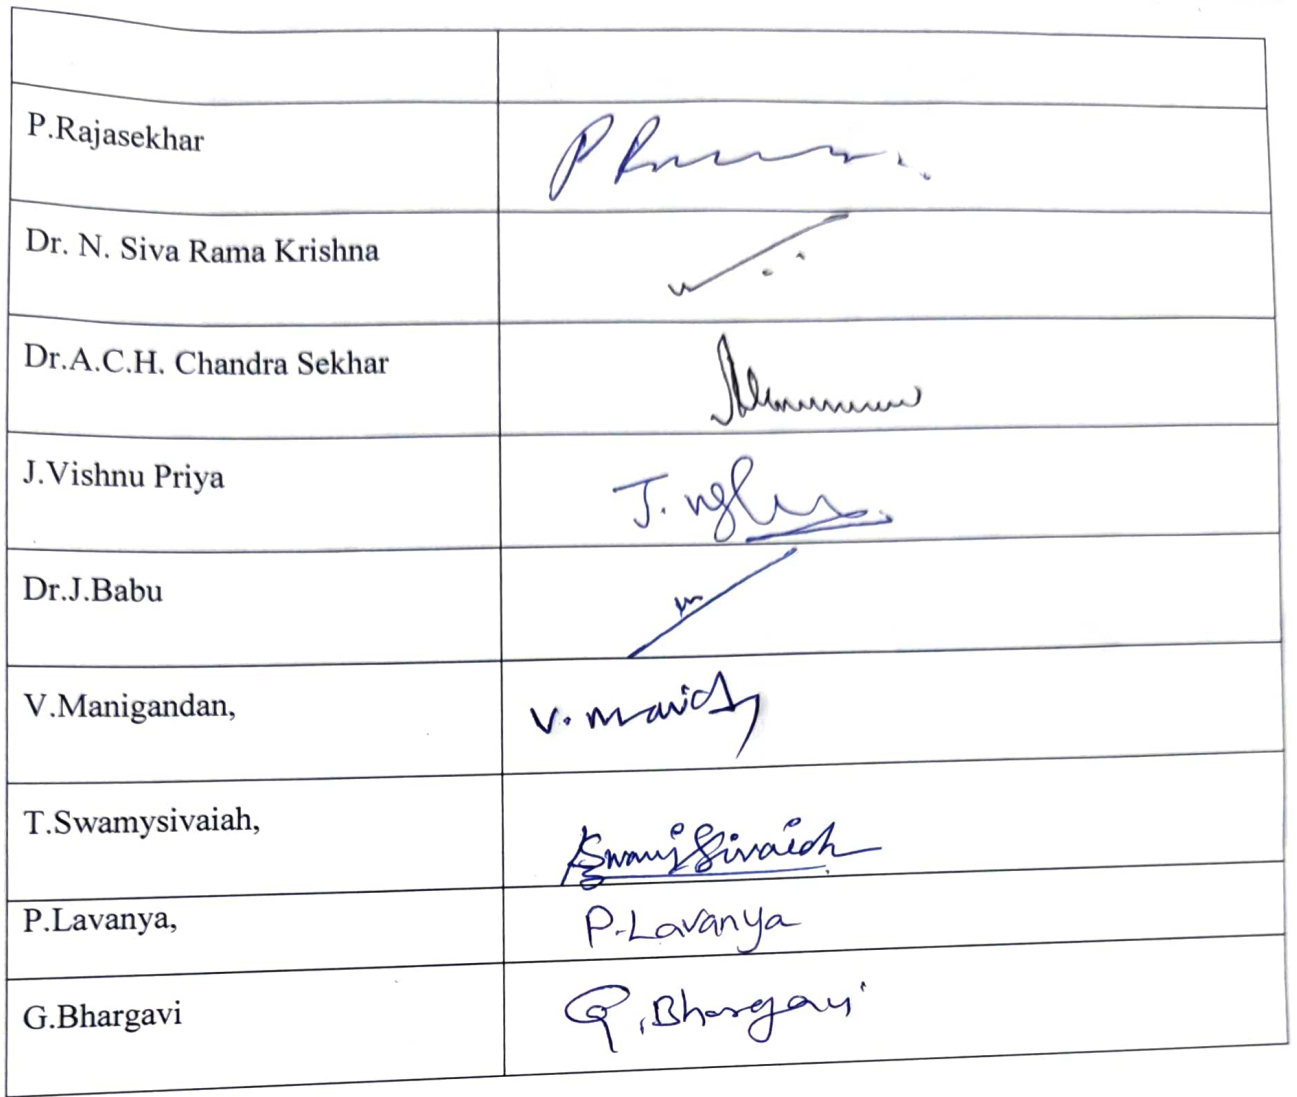 P.Rajasekhar
Dr. N. Siva Rama Krishna
Dr.A.C.H. Chandra Sekhar
J.Vishnu Priya
J.
Dr.J.Babu
V.Manigandan,
V.
T.Swamysivaiah,
Swamy Sivaiah
P.Lavanya,
P.Lavanya
G.Bhargavi
G.Bhargavi